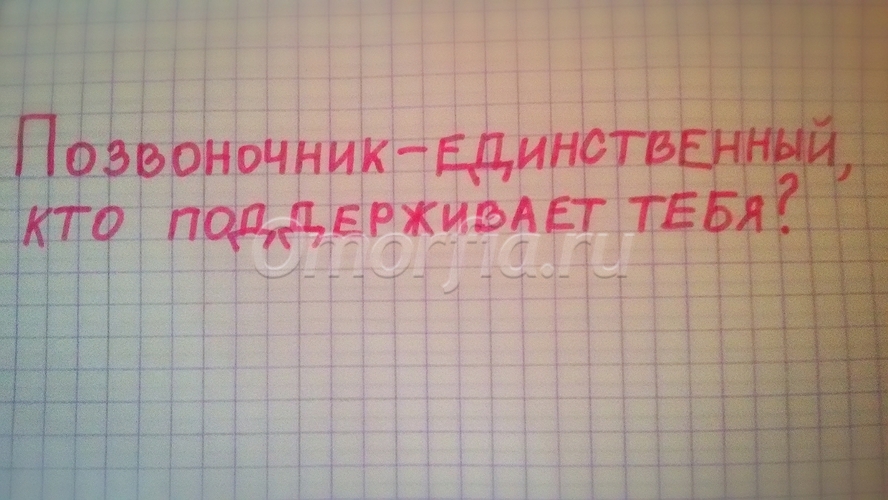 Позвоночник – единственный,
кто поддерживает тебя?
Omorfia.ru